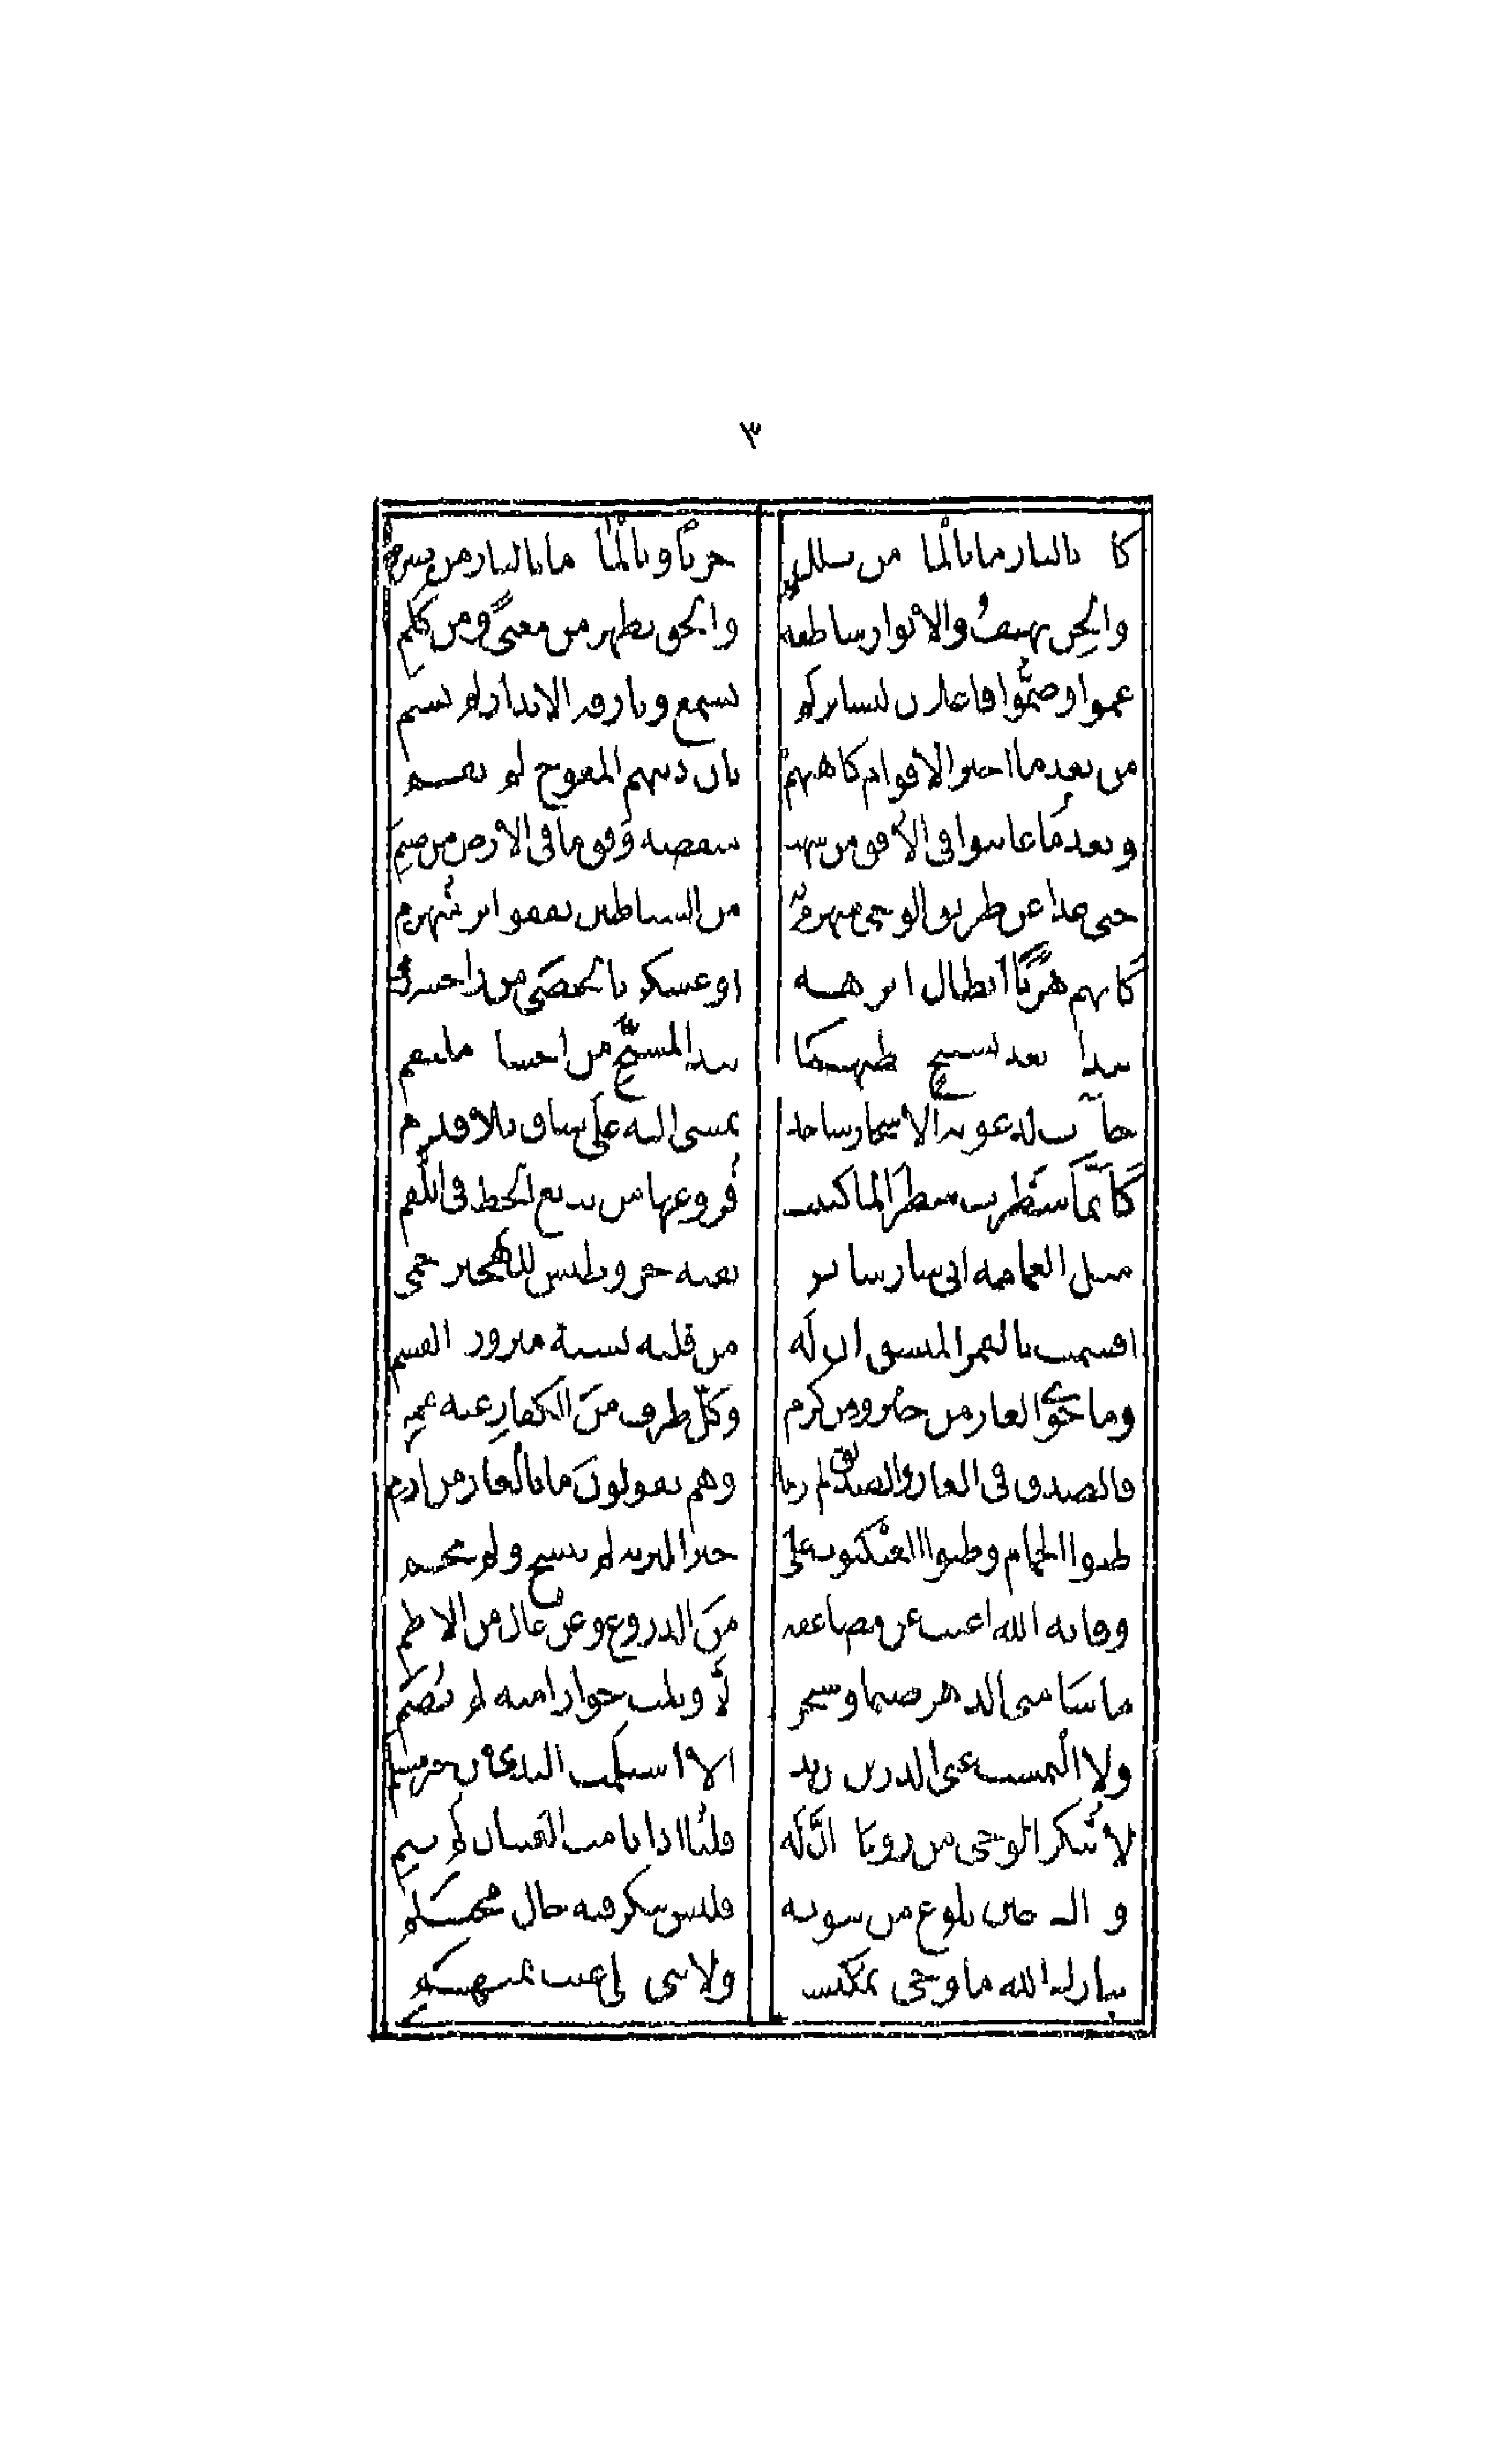 ٣
كأن بالنار ما بالماء من بلل حزنا وبالماء ما بالنار من ضرم
والجن تهتف والانوار ساطعة والحق يظهر من معنى ومن كلم
عموا وصموا فاعلان البشائر لم تسمع وبارقة الانذار لم تشم
من بعد ما اخبر الاقوام كاهنهم بان دينهم المعوج لم يقم
وبعد ما عاينوا فى الافق من شهب منقضة وفق ما فى الارض من صنم
حتى غدا عن طريق الوحى منهزم من الشياطين يقفوا اثر منهزم
كأنهم هربا ابطال ابرهة او عسكر بالحصى من راحتيه رمى
نبذا به بعد تسبيح ببطنهما نبذ المسبح من احشاء ملتقم
جآءت لدعوته الاشجار ساجدة تمشى اليه على ساق بلا قدم
كأنما سطرت سطرا لما كتبت فروعها من بديع الخط فى اللقم
مثل الغمامة انى سار سائرة تقيه حر وطيس للهجير حمى
اقسمت بالقمر المنشق ان له من قلبه نسبة مبرورة القسم
وما حوى الغار من خير ومن كرم وكل طرف من الكفار عنه عمى
فالصدق فى الغار والصديق لم يرما وهم يقولون ما بالغار من ارم
ظنوا الحمام وظنوا العنكبوت على خير البرية لم تنسج ولم تحم
وقاية الله اغنت عن مضاعفة من الدروع وعن عال من الاطم
ما سامنى الدهر ضيما واستجرت به الا ونلت جوارا منه لم يضم
ولا التمست غنى الدارين من يده الا استلمت الندى من خير مستلم
لا تنكر الوحى من رؤياه ان له قلبا اذا نامت العينان لم ينم
وذاك حين بلوغ من نبوته فليس ينكر فيه حال محتلم
تبارك الله ما وحى بمكتسب ولا نبى على غيب بمتهم